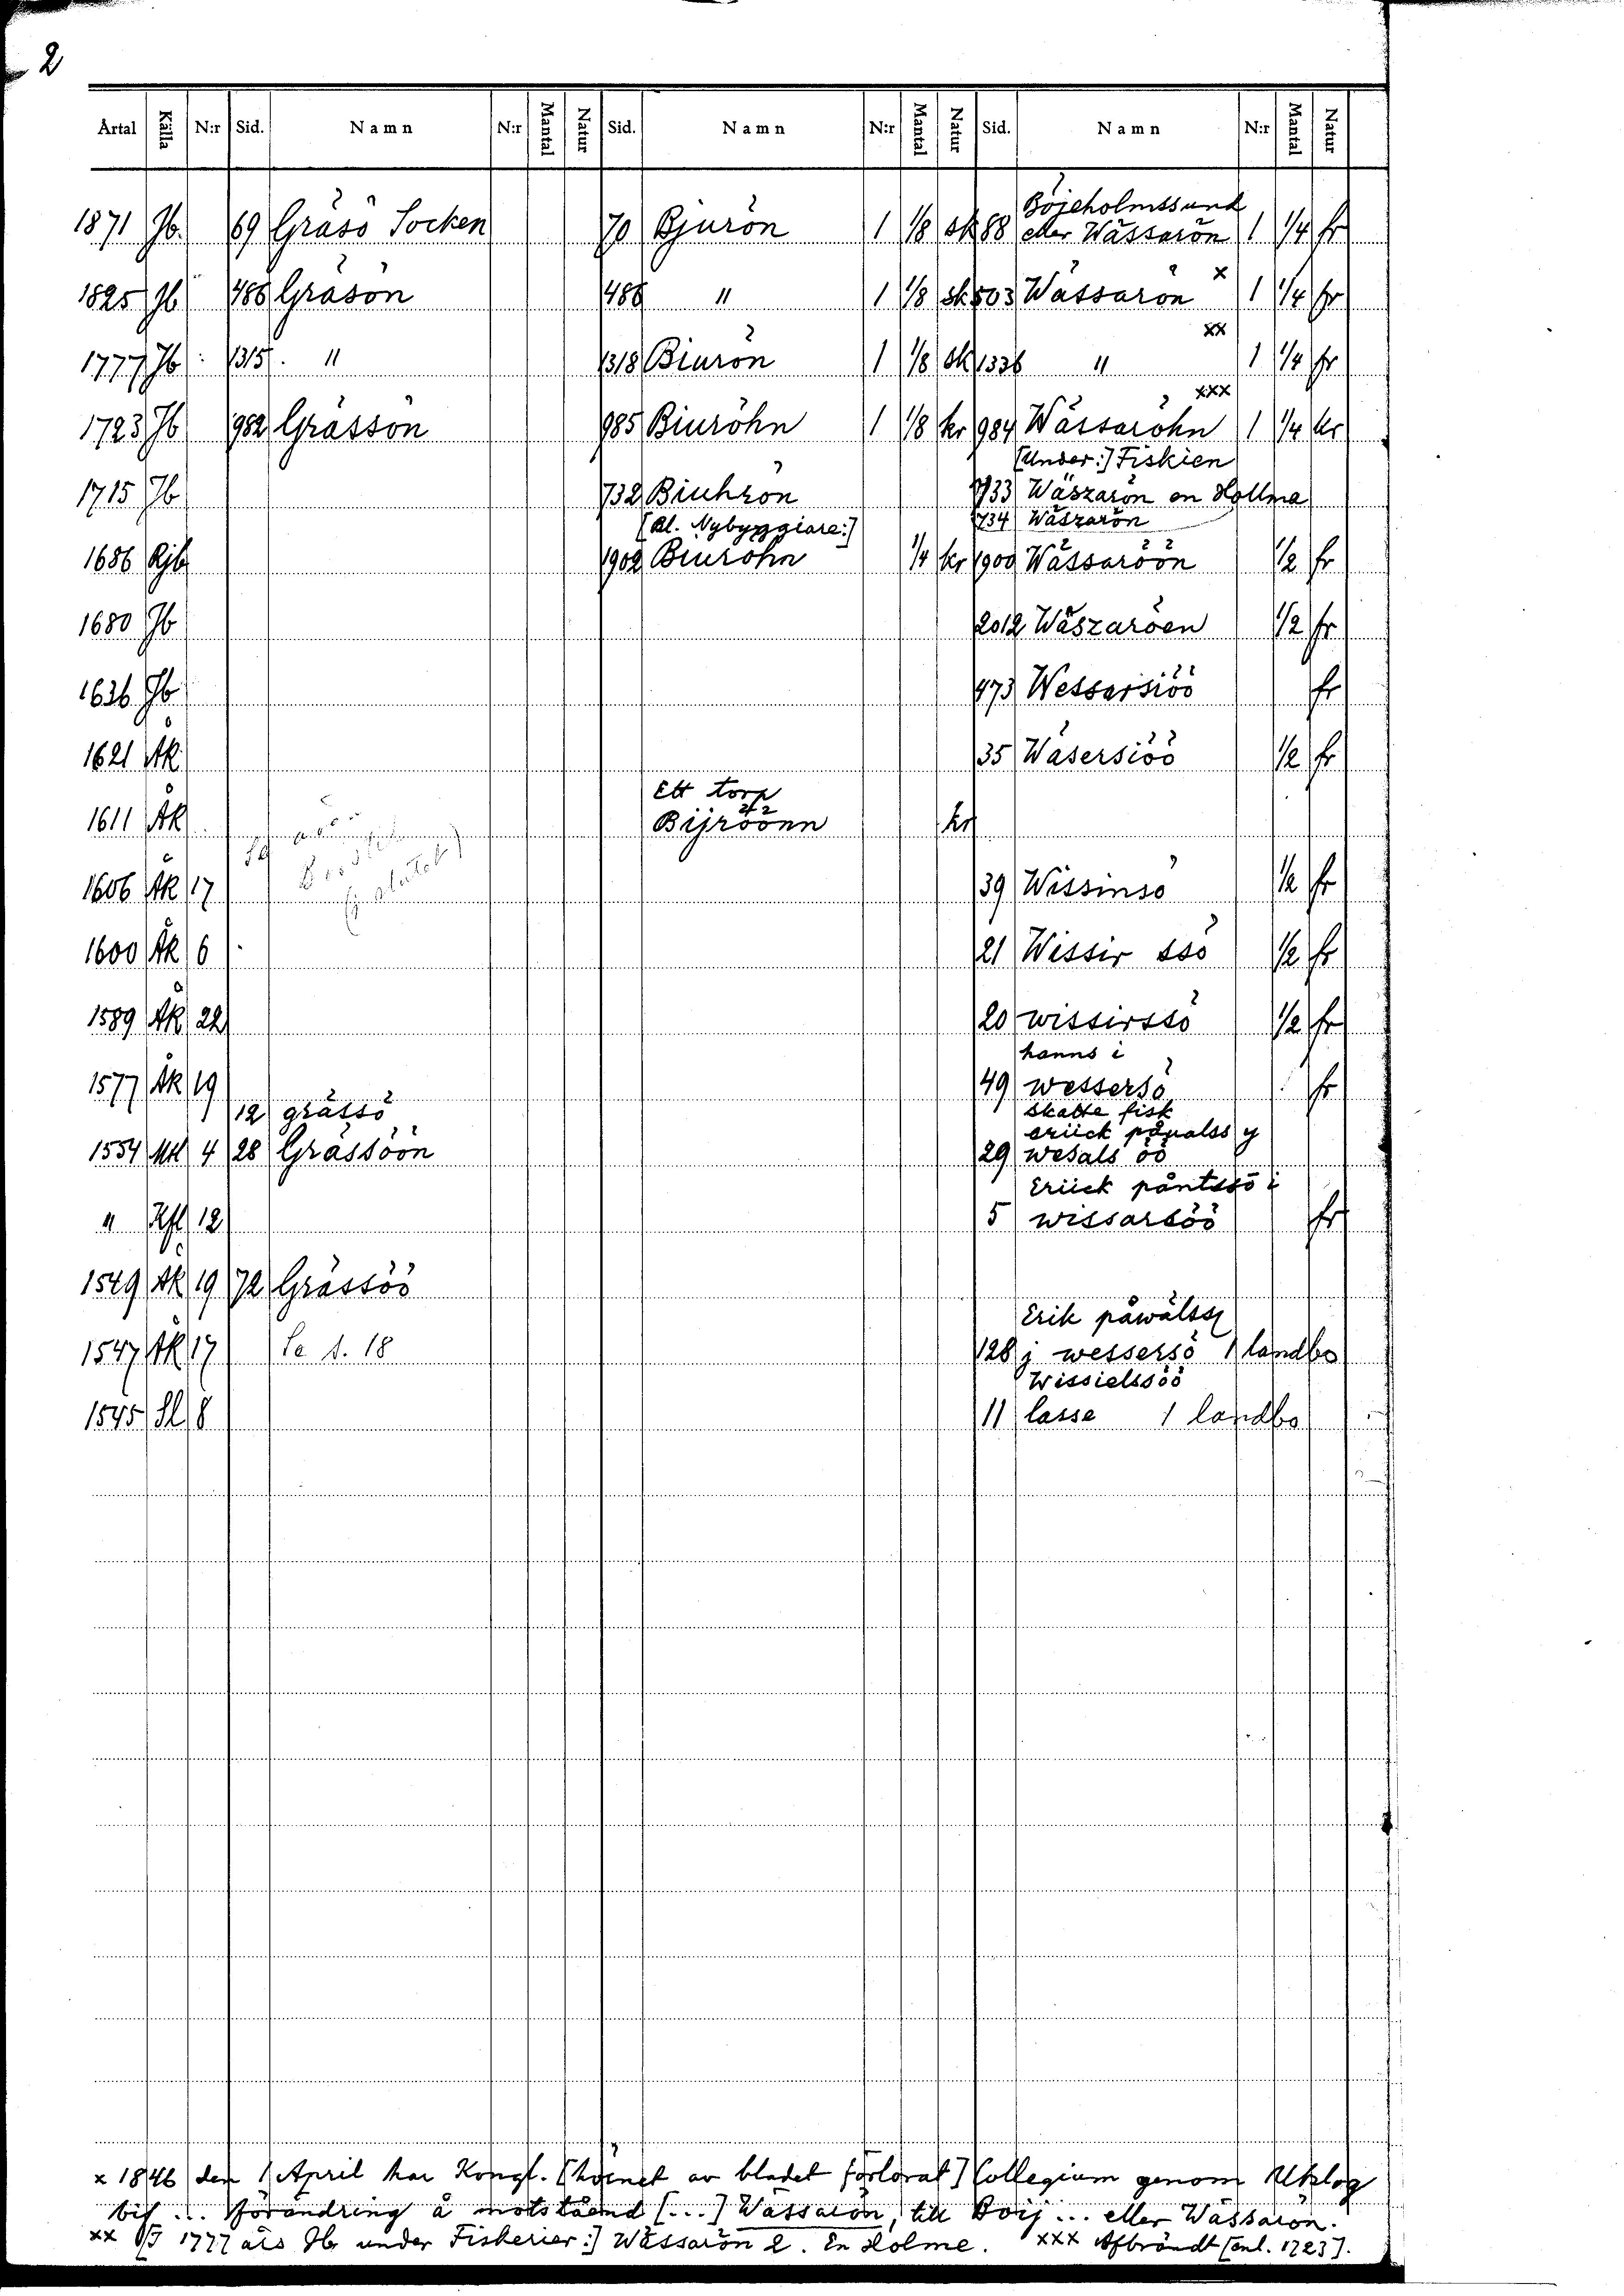 2
Artal Källa N:r Sid. Namn N:r Mantal Natur Sid. Namn N:r Mantal Natur Sid. Namn N:r Mantal Natur
Böjeholmssund
1871 Jb. 69 Gräsö Socken 70 Bjurön 1 1/8 sk 88 eller Wässarön 1 1/4 fr
1825 Jb 486 Gräsön 486 " 1 1/8 sk 503 Wässarön x 1 1/4 fr
1777 Jb 1315 " 1318 Biurön 1 1/8 sk 1336 " xx 1 1/4 fr
1723 Jb 982 Grässön 985 Biuröhn 1 1/8 kr 984 Wässaröhn xxx 1 1/4 kr
[Under:] Fiskien
1715 Jb 732 Biuhrön 733 Wäszarön en Hollma
[Bl. Nybyggiare:] 734 Wäszarön
1686 Rjb 1902 Biuröhn 1/4 kr 1900 Wässaröön 1/2 fr
1680 Jb 2012 Wäszaröen 1/2 fr
1636 Jb 473 Wessarsiöö fr
1621 ÅK 35 Wäsersiöö 1/2 fr
Ett torp
1611 ÅK Bijröönn kr
1606 ÅK 17 39 Wissinsö 1/2 fr
1600 ÅK 6 21 Wissir ssö 1/2 fr
1589 ÅK 22 20 wissirssö 1/2 fr
hanns i
1577 ÅK 19 49 wessersö fr
12 grässö skatte fisk
eriick påualss y
1554 4 28 Grässöön 29 wesals öö
Eriick påntssö i
" 12 5 wissarsöö fr
1549 ÅK 19 72 Grässöö
Erik påwälss
1547 ÅK 17 Se s. 18 128 j wessersö 1 landbo
Wissielssöö
1545 Sl 8 11 lasse 1 landbo
x 1846 den 1 April har Kongl. [hörnet av bladet förlorat] Collegium genom Utslag
bif ... förändring å motståend [...] Wässarön, till Boij... eller Wässarön.
xx [I 1777 års Jb under Fiskerier:] Wässarön 2. En Holme. xxx Afbrändt [enl. 1723].